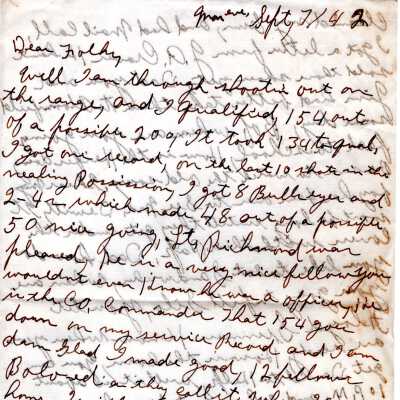 Mon eve, Sept, 7/42
Dear Folks,
Well I am through shootin out on
the range, and I qualified, 154 out
of a possible 200, It took 134 to qual,
I got one record, on the last 10 shots in the
nealing Possission, I got 8 Bullseyes and
2-4s which made 48 out of a possible
50 nice going, Lt, Richmond was
pleased, he is a very nice fellow you
wouldnt even know he was a officer, he
is the CO, Commander That 154 goes
down on my service Record and I am
darn Glad I made good, 12 fellows
Boloed as they call it
home